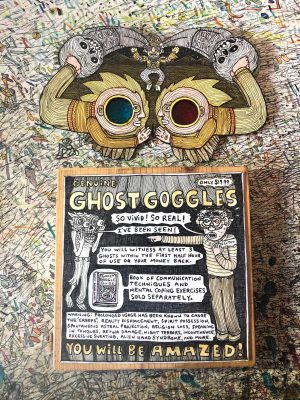 GENUINE
ONLY $19.99
GHOST GOGGLES
SO VIVID! SO REAL!
I'VE BEEN SEEN!
YOU WILL WITNESS AT LEAST 3
GHOSTS WITHIN THE FIRST HALF HOUR
OF USE OR YOUR MONEY BACK.
BOOK OF COMMUNICATION
TECHNIQUES AND
MENTAL COPING EXERCISES
SOLD SEPARATELY.
WARNING: PROLONGED USAGE HAS BEEN KNOWN TO CAUSE
THE "CREEPS", REALITY DISPLACEMENT, SPIRIT POSSESSION,
SPONTANEOUS ASTRAL PROJECTION, RELIGION LOSS, SPEAKING
IN TONGUES, RETINA DAMAGE, NIGHT TERRORS, INCONTINENCE,
EXCESSIVE SWEATING, ALIEN HAND SYNDROME, AND MORE.
YOU WILL BE AMAZED!